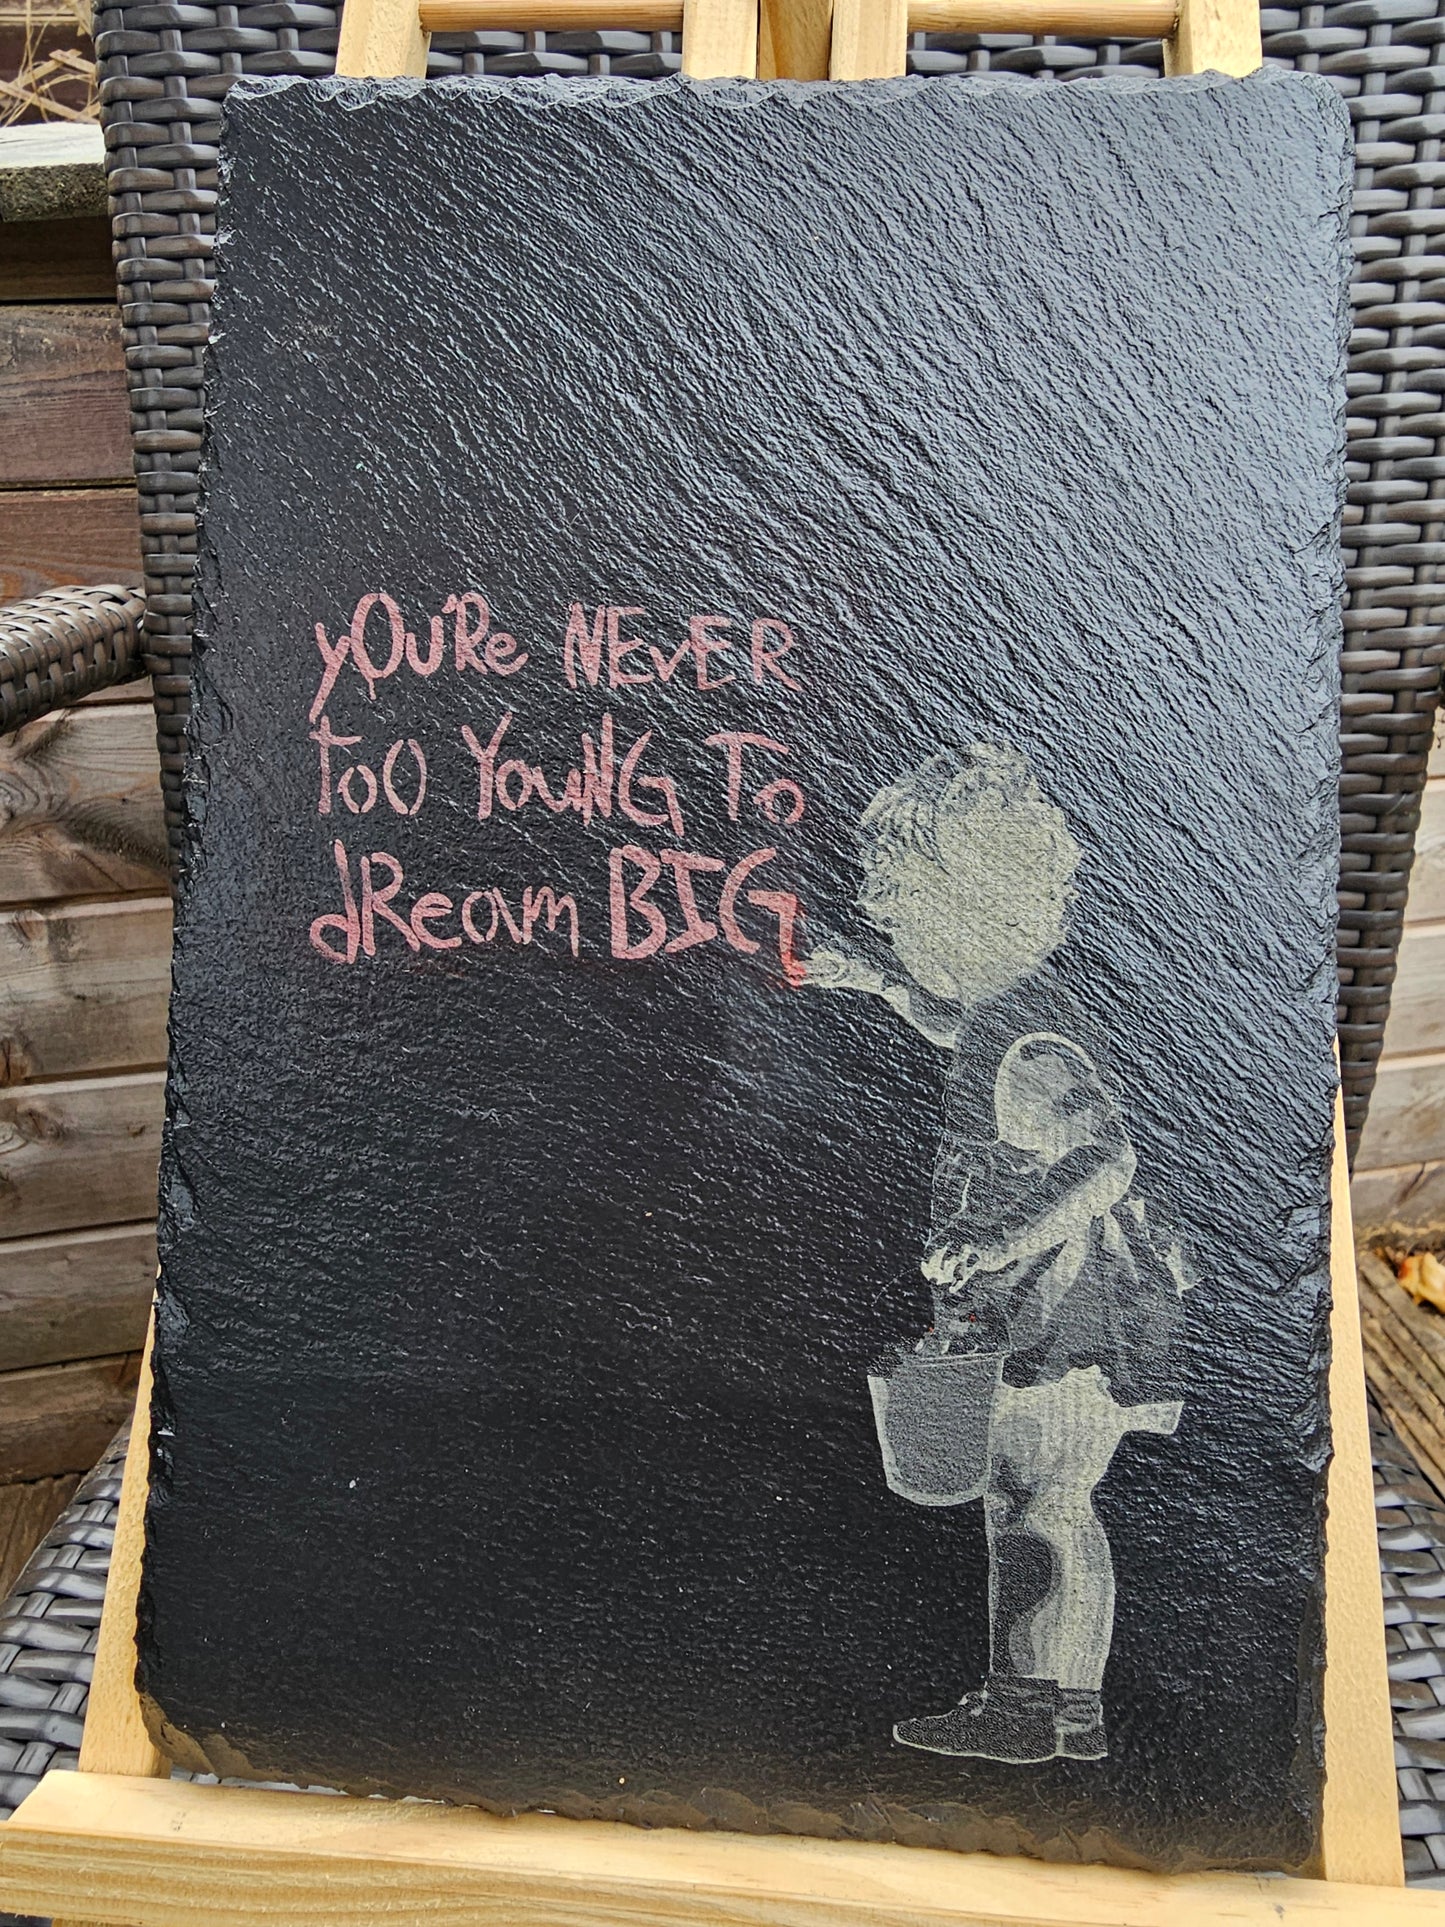 yOu'Re NEvER
too YouNG To
dReam BIG